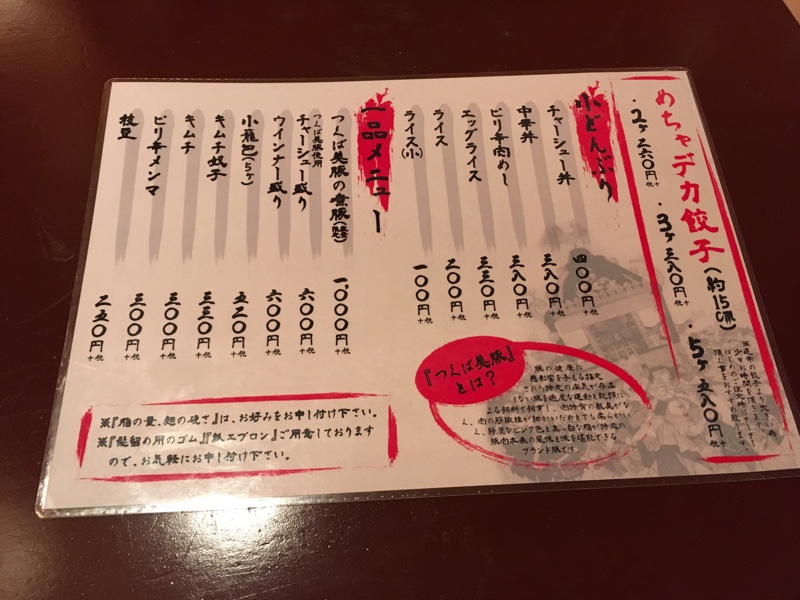 めちゃデカ餃子(約15㎝)
・2ヶ 二六〇円+税
・3ヶ 三八〇円+税
・5ヶ 五八〇円+税
小どんぶり
チャーシュー丼 四〇〇円+税
中華丼 三八〇円+税
ピリ辛肉めし 三八〇円+税
エッグライス 三三〇円+税
ライス 二〇〇円+税
ライス(小) 一〇〇円+税
一品メニュー
つくば美豚の煮豚 一、〇〇〇円+税
つくば美豚使用
チャーシュー盛り 六〇〇円+税
ウインナー盛り 六〇〇円+税
小龍包(5ヶ) 五二〇円+税
キムチ奴子 三三〇円+税
キムチ 三〇〇円+税
ピリ辛メンマ 三〇〇円+税
枝豆 二五〇円+税
『つくば美豚』
とは?
豚の健康に
しない豚を適度な運動と乾燥に
豚肉本来の風味と味を堪能できる
ブランド豚です。
※『脂の量、麺の硬さ』は、お好みをお申し付け下さい。
※『髪留め用のゴム』『紙エプロン』ご用意しております
ので、お気軽にお申し付け下さい。